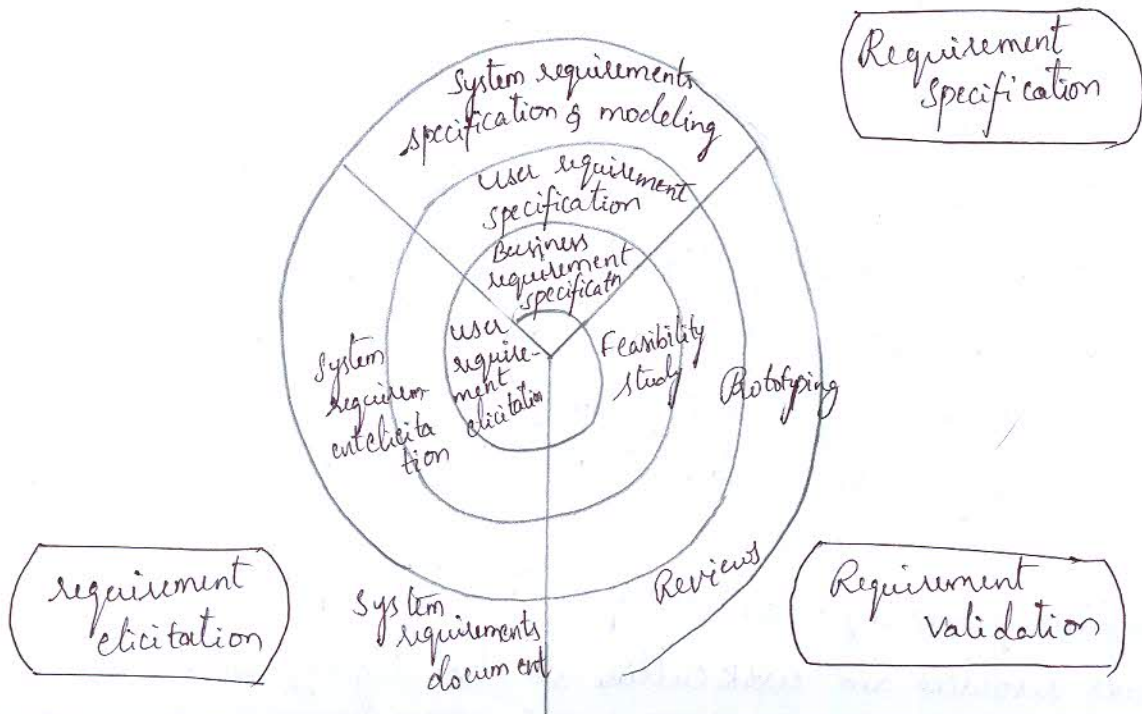 Requirement
specification
System requirements
specification & modeling
User requirement
specification
Business
requirement
specificatn
User
require-
ment
elicitation
Feasibility
study
System
requirem
entelicita
tion
Prototyping
requirement
elicitation
System
requirements
document
Reviews
Requirement
validation